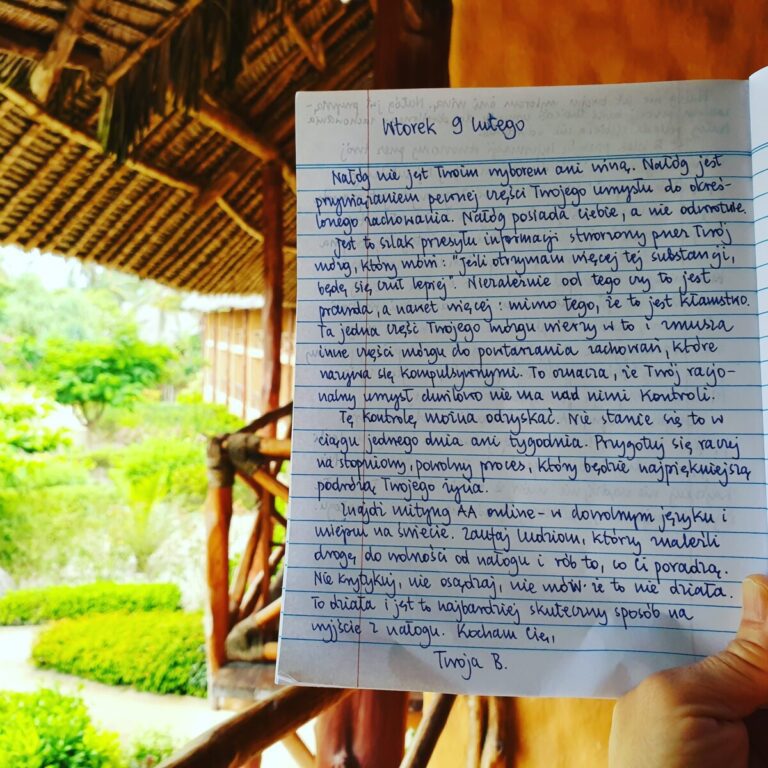 Wtorek 9 lutego
Nałóg nie jest Twoim wyborem ani winą. Nałóg jest
przywiązaniem pewnej części Twojego umysłu do okreś-
lonego zachowania. Nałóg posiada ciebie, a nie odwrotnie.
Jest to szlak przesyłu informacji stworzony przez Twój
mózg, który mówi: "Jeśli otrzymam więcej tej substancji,
będę się czuł lepiej". Niezależnie od tego czy to jest
prawda, a nawet więcej: mimo tego, że to jest kłamstwo.
Ta jedna część Twojego mózgu wierzy w to i zmusza
inne części mózgu do powtarzania zachowań, które
nazywa się kompulsywnymi. To oznacza, że Twój racjo-
nalny umysł dwilowo nie ma nad nimi kontroli.
Tę kontrolę można odzyskać. Nie stanie się to w
ciągu jednego dnia ani tygodnia. Przygotuj się raczej
na stopniowy, powolny proces, który będzie najpiękniejszą
podróżą Twojego życia.
Znajdź mityng AA online - w dowolnym języku i
miejscu na świecie. Zaufaj ludziom, którzy znaleźli
drogę do wolności od nałogu i rób to, co Ci poradzą.
Nie krytykuj, nie osądzaj, nie mów że to nie działa.
To działa i jest to najbardziej skuteczny sposób na
wyjście z nałogu. Kocham Cię,
Twoja B.